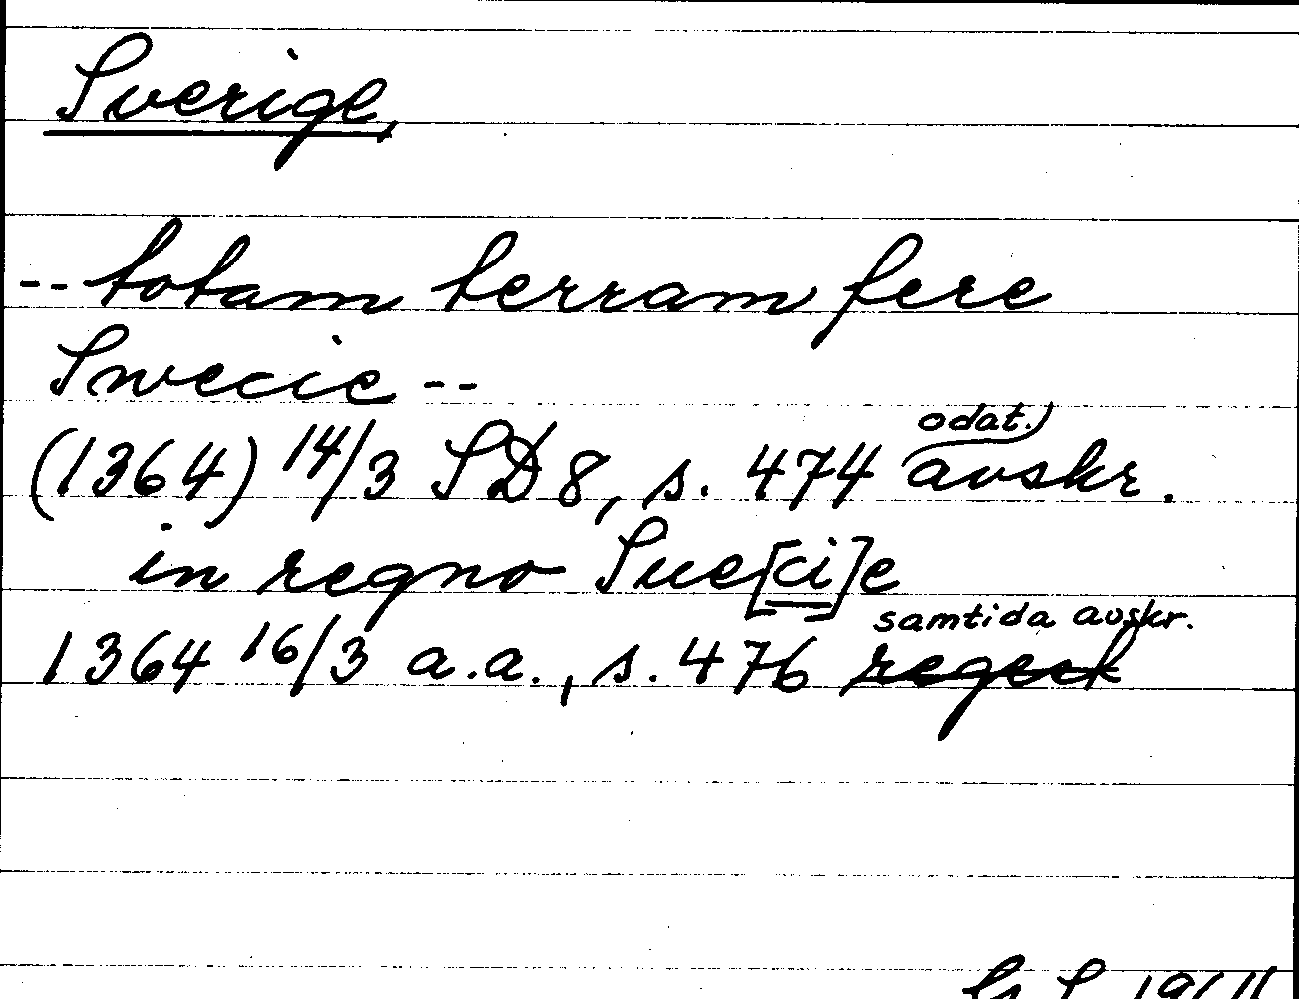 Sverige,
-- totam terram fere
Swecie --
(1364) 14/3 SD 8, s. 474 odat. avskr.
in regno Sue[ci]e
1364 16/3 a.a., s. 476 samtida avskr.